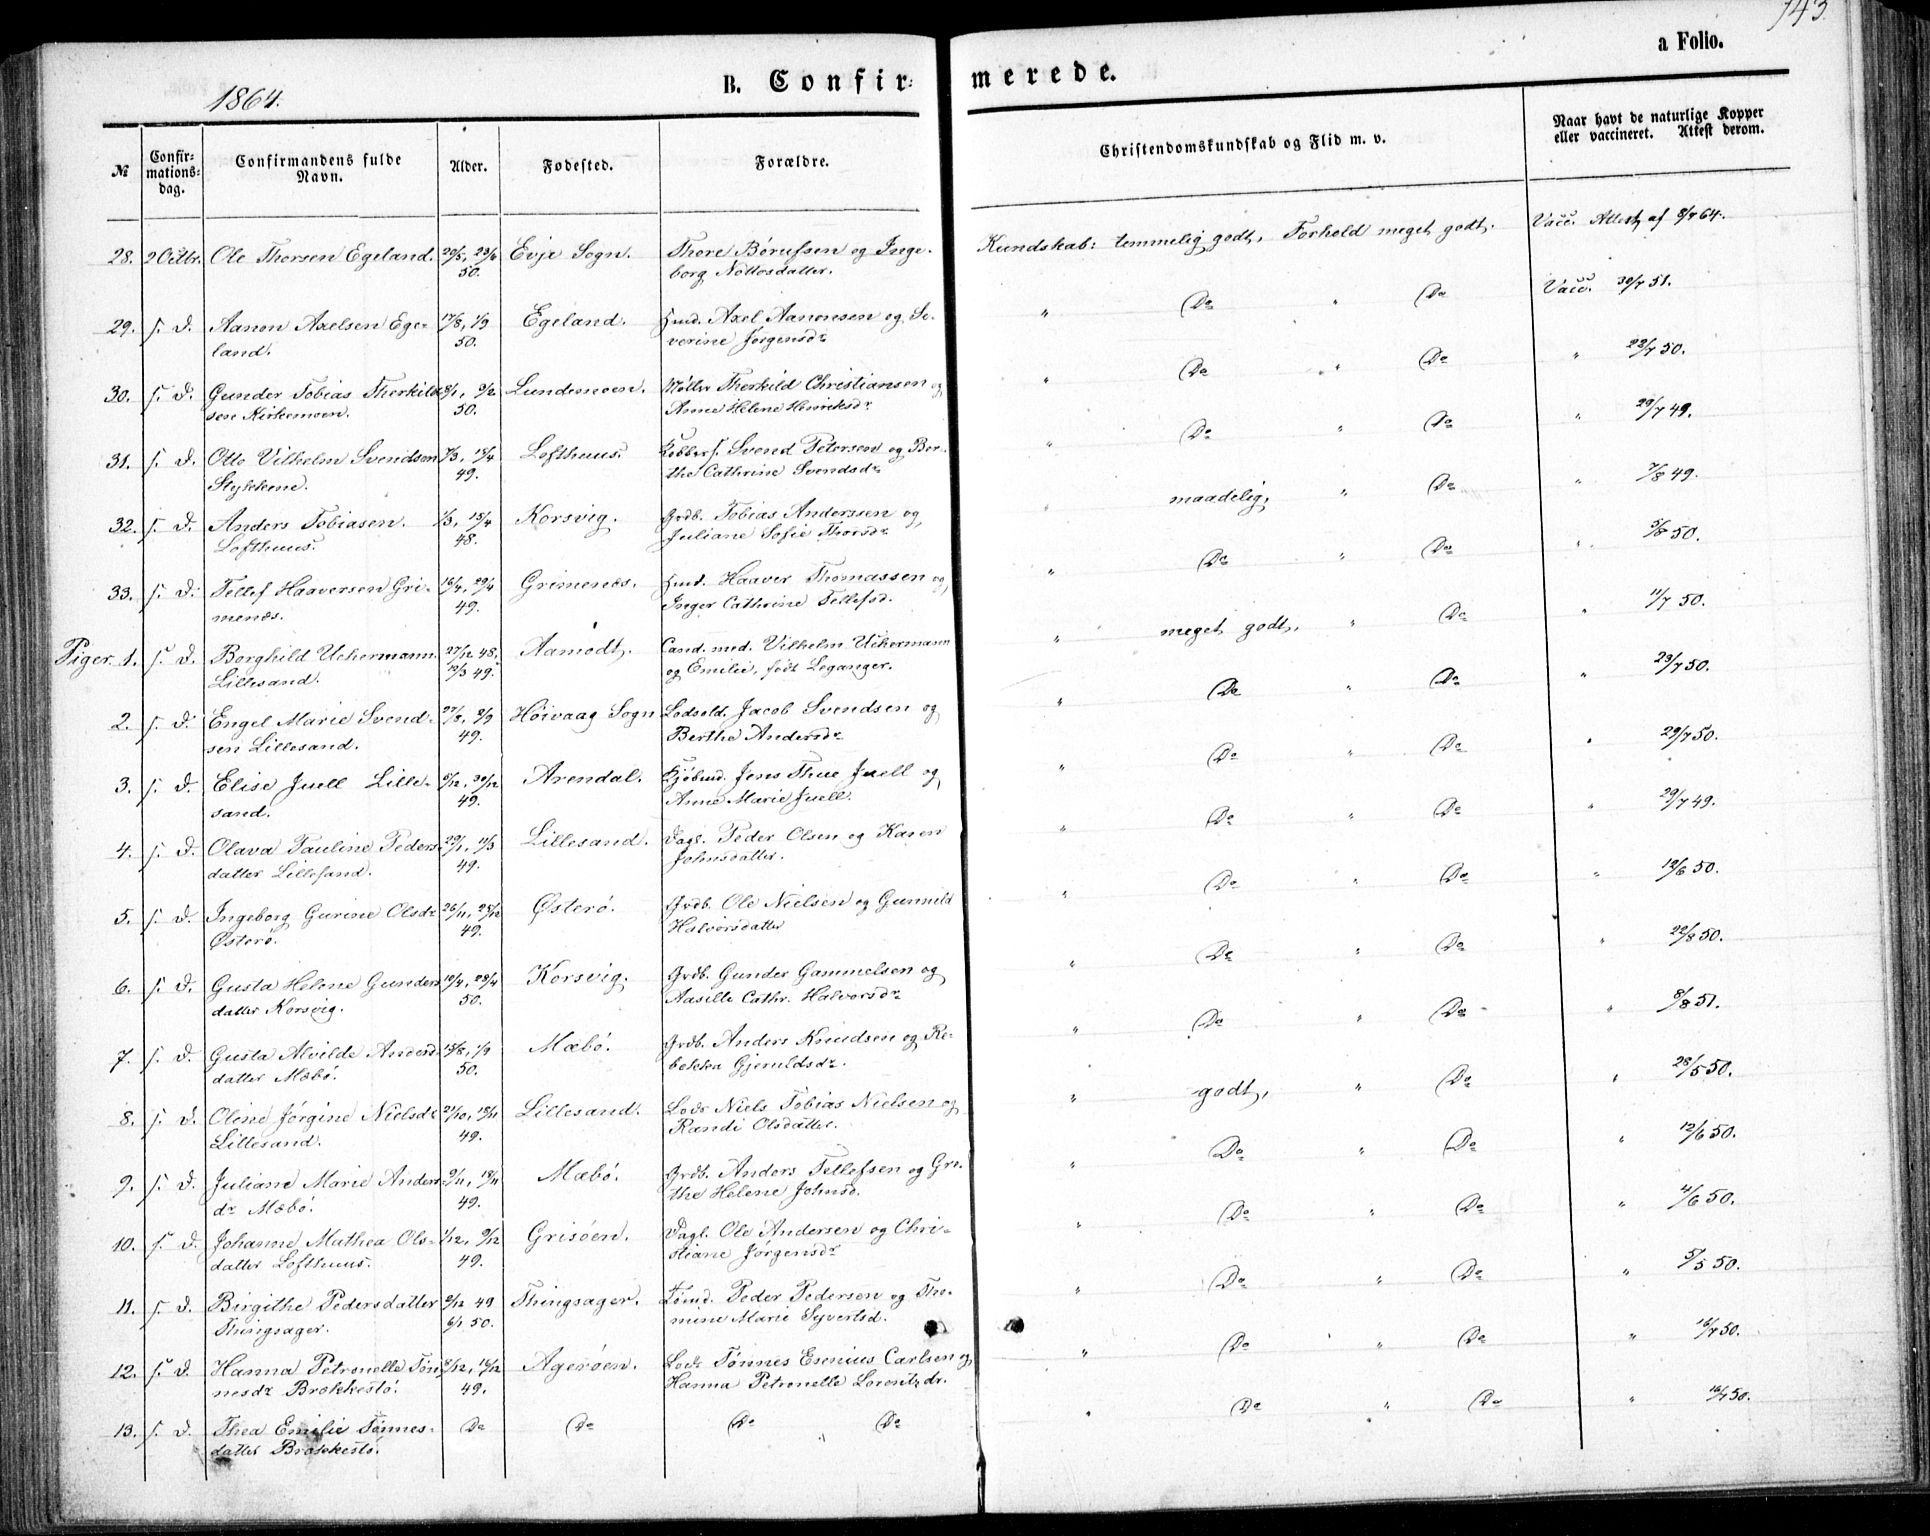 143.
a Folio.
1864.
B. Confir-
merede.
№
Confir-
mations-
dag.
Confirmandens fulde
Navn.
Alder.
Fødested.
Forældre.
Christendomskundskab og Flid m. v.
Naar havt de naturlige Kopper
eller vaccineret. Attest derom.
28. 2 Octbr. Ole Thorsen Egeland. 20/5, 23/6 Evje Sogn. Thore Børufsen og Inge- Kundskab: temmelig godt, Forhold meget godt. Vacc. Attest af 8/7 64.
50. borg Nottosdatter.
29. s. d. Aanon Axelsen Ege- 17/8, 1/9 Egeland. Hmd. Axel Aanonsen og Se- " Do " Do Vacc. 30/7 51.
land. 50. verine Jørgensdr
30. s. d. Gunder Tobias Therkild- 8/1, 9/2 Lundemoen. Møller Therkild Christiansen og " Do " Do " 22/7 50.
sen Kirkemoen. 50. Anne Helene Henriksdr
31. s. d. Otto Vilhelm Svendsen 7/3, 15/4 Lofthuus. Kobbers. Svend Petersen og Ber- " Do " Do " 29/7 49.
Stykkene. 49. the Cathrine Svendsdr
32. s. d. Anders Tobiasen. 1/3, 15/4 Korsvig. Grdb. Tobias Anderssen og " maadelig, " Do " 7/8 49.
Lofthuus. 48. Juliane Sofie Thorsdr
33. s. d. Tellef Haaversen Gri- 16/4, 29/4 Grimenæs. Hmd. Haaver Thomassen og " Do " Do " 5/8 50.
menæs. 49. Inger Cathrine Tellefsd.
Piger 1. s. d. Borghild Uckermann 27/12 48, Aamodt. Cand. med. Vilhelm Uckermann " meget godt, " Do " 11/7 50.
Lillesand. 19/3 49. og Emilie, født Leganger.
2. s. d. Engel Marie Svend- 27/8, 2/9 Høivaag Sogn Lodsold. Jacob Svendsen og " Do " Do " 23/7 50.
sen Lillesand. 49. Berthe Andersdr
3. s. d. Elise Juell Lille- 9/12, 30/12 Arendal. Kjøbmd. Jens Thue Juell og " Do " Do " 29/7 50.
sand. 49. Anne Marie Juell.
4. s. d. Olava Pauline Peders- 29/1, 11/3 Lillesand. Dagl. Peder Olsen og Karen " Do " Do " 29/7 49.
datter Lillesand. 49. Johnsdatter.
5. s. d. Ingeborg Gurine Olsdr 26/11, 25/12 Østerø. Grdb. Ole Nielsen og Gunnild " Do " Do " 12/6 50.
Østerø. 49. Halvorsdatter
6. s. d. Gusta Helene Gunders- 12/4, 28/4 Korsvig. Grdb. Gunder Gammelsen og " Do " Do " 22/8 50.
datter Korsvig. 50. Aasille Cathr. Halvorsdr
7. s. d. Gusta Alvilde Anders- 15/8, 1/9 Mæbø. Grdb. Anders Knudsen og Re- " Do " Do " 8/8 51.
datter Mæbø. 50. bekka Gjeruldsdr.
8. s. d. Oline Jørgine Nielsdr 21/10, 18/11 Lillesand. Lods Niels Tobias Nielsen og " godt, " Do " 28/5 50.
Lillesand. 49. Randi Olsdatter.
9. s. d. Juliane Marie Anders- 9/11, 18/11 Mæbø. Grdb. Anders Tellefsen og Gre- " Do " Do " 12/6 50.
dr Mæbø. 49. the Helene Johnsd.
10. s. d. Johanne Mathea Ols- 1/12, 9/12 Grisøen. Dagl. Ole Andersen og Chri- " Do " Do " 4/6 50.
datter Lofthuus. 49. stiane Jørgensdr
11. s. d. Birgithe Pedersdatter 9/12 49 Thingsager. Tømd. Peder Pedersen og Tho- " Do " Do " 5/5 50.
Thingsager. 6/1 50. mine Marie Syvertsd.
12. s. d. Hanna Petronelle Tøn- 8/12, 16/12 Agerøen. Lods Tønnes Esenius Carlsen og " Do " Do " 16/7 50.
nesdr Brekkestø. 49. Hanna Petronelle Lorentzdr.
13. s. d. Thea Emilie Tønnes- Do Do Do Do " Do " Do " 16/7 50.
datter Brekkestø.